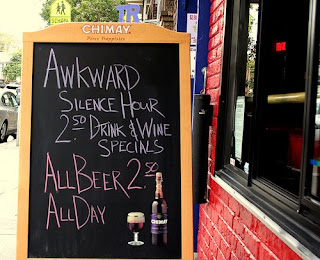 SCHOOL
TR
CHIMAY
Pères Trappistes
AWKWARD
SILENCE HOUR
2.50 DRINK & WINE
SPECIALS
ALL BEER 2.50
ALL DAY
CHIMAY